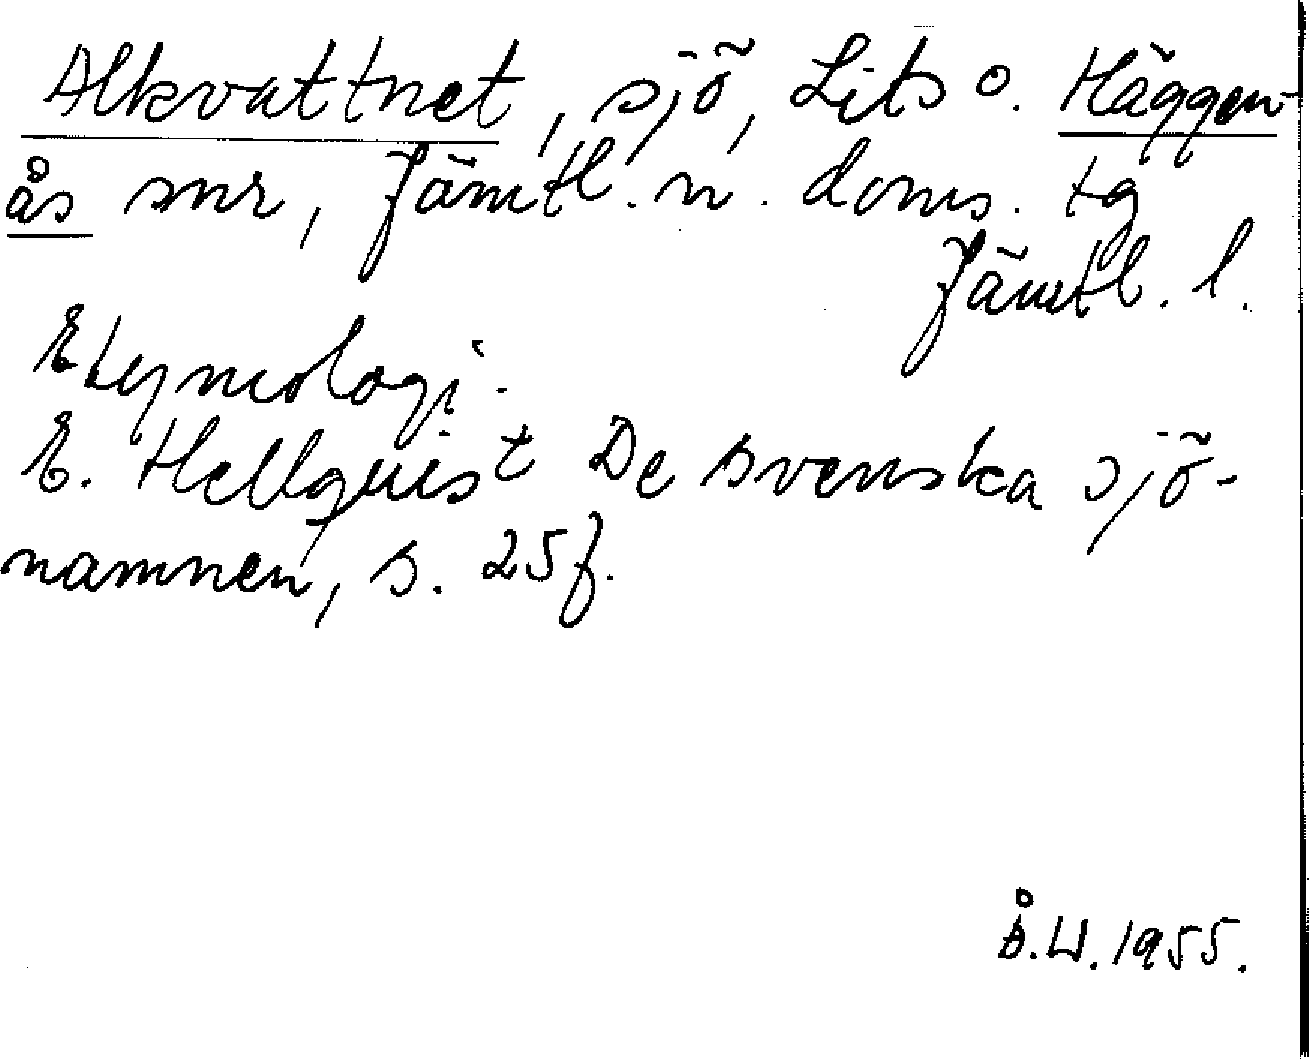 Alkvattnet, sjö, Lits o. Häggen-
ås snr, Jämtl. n. doms. tg
Jämtl. l.
Etymologi.
E. Hellquist De svenska sjö-
namnen, s. 25 f.
Å.W. 1955.